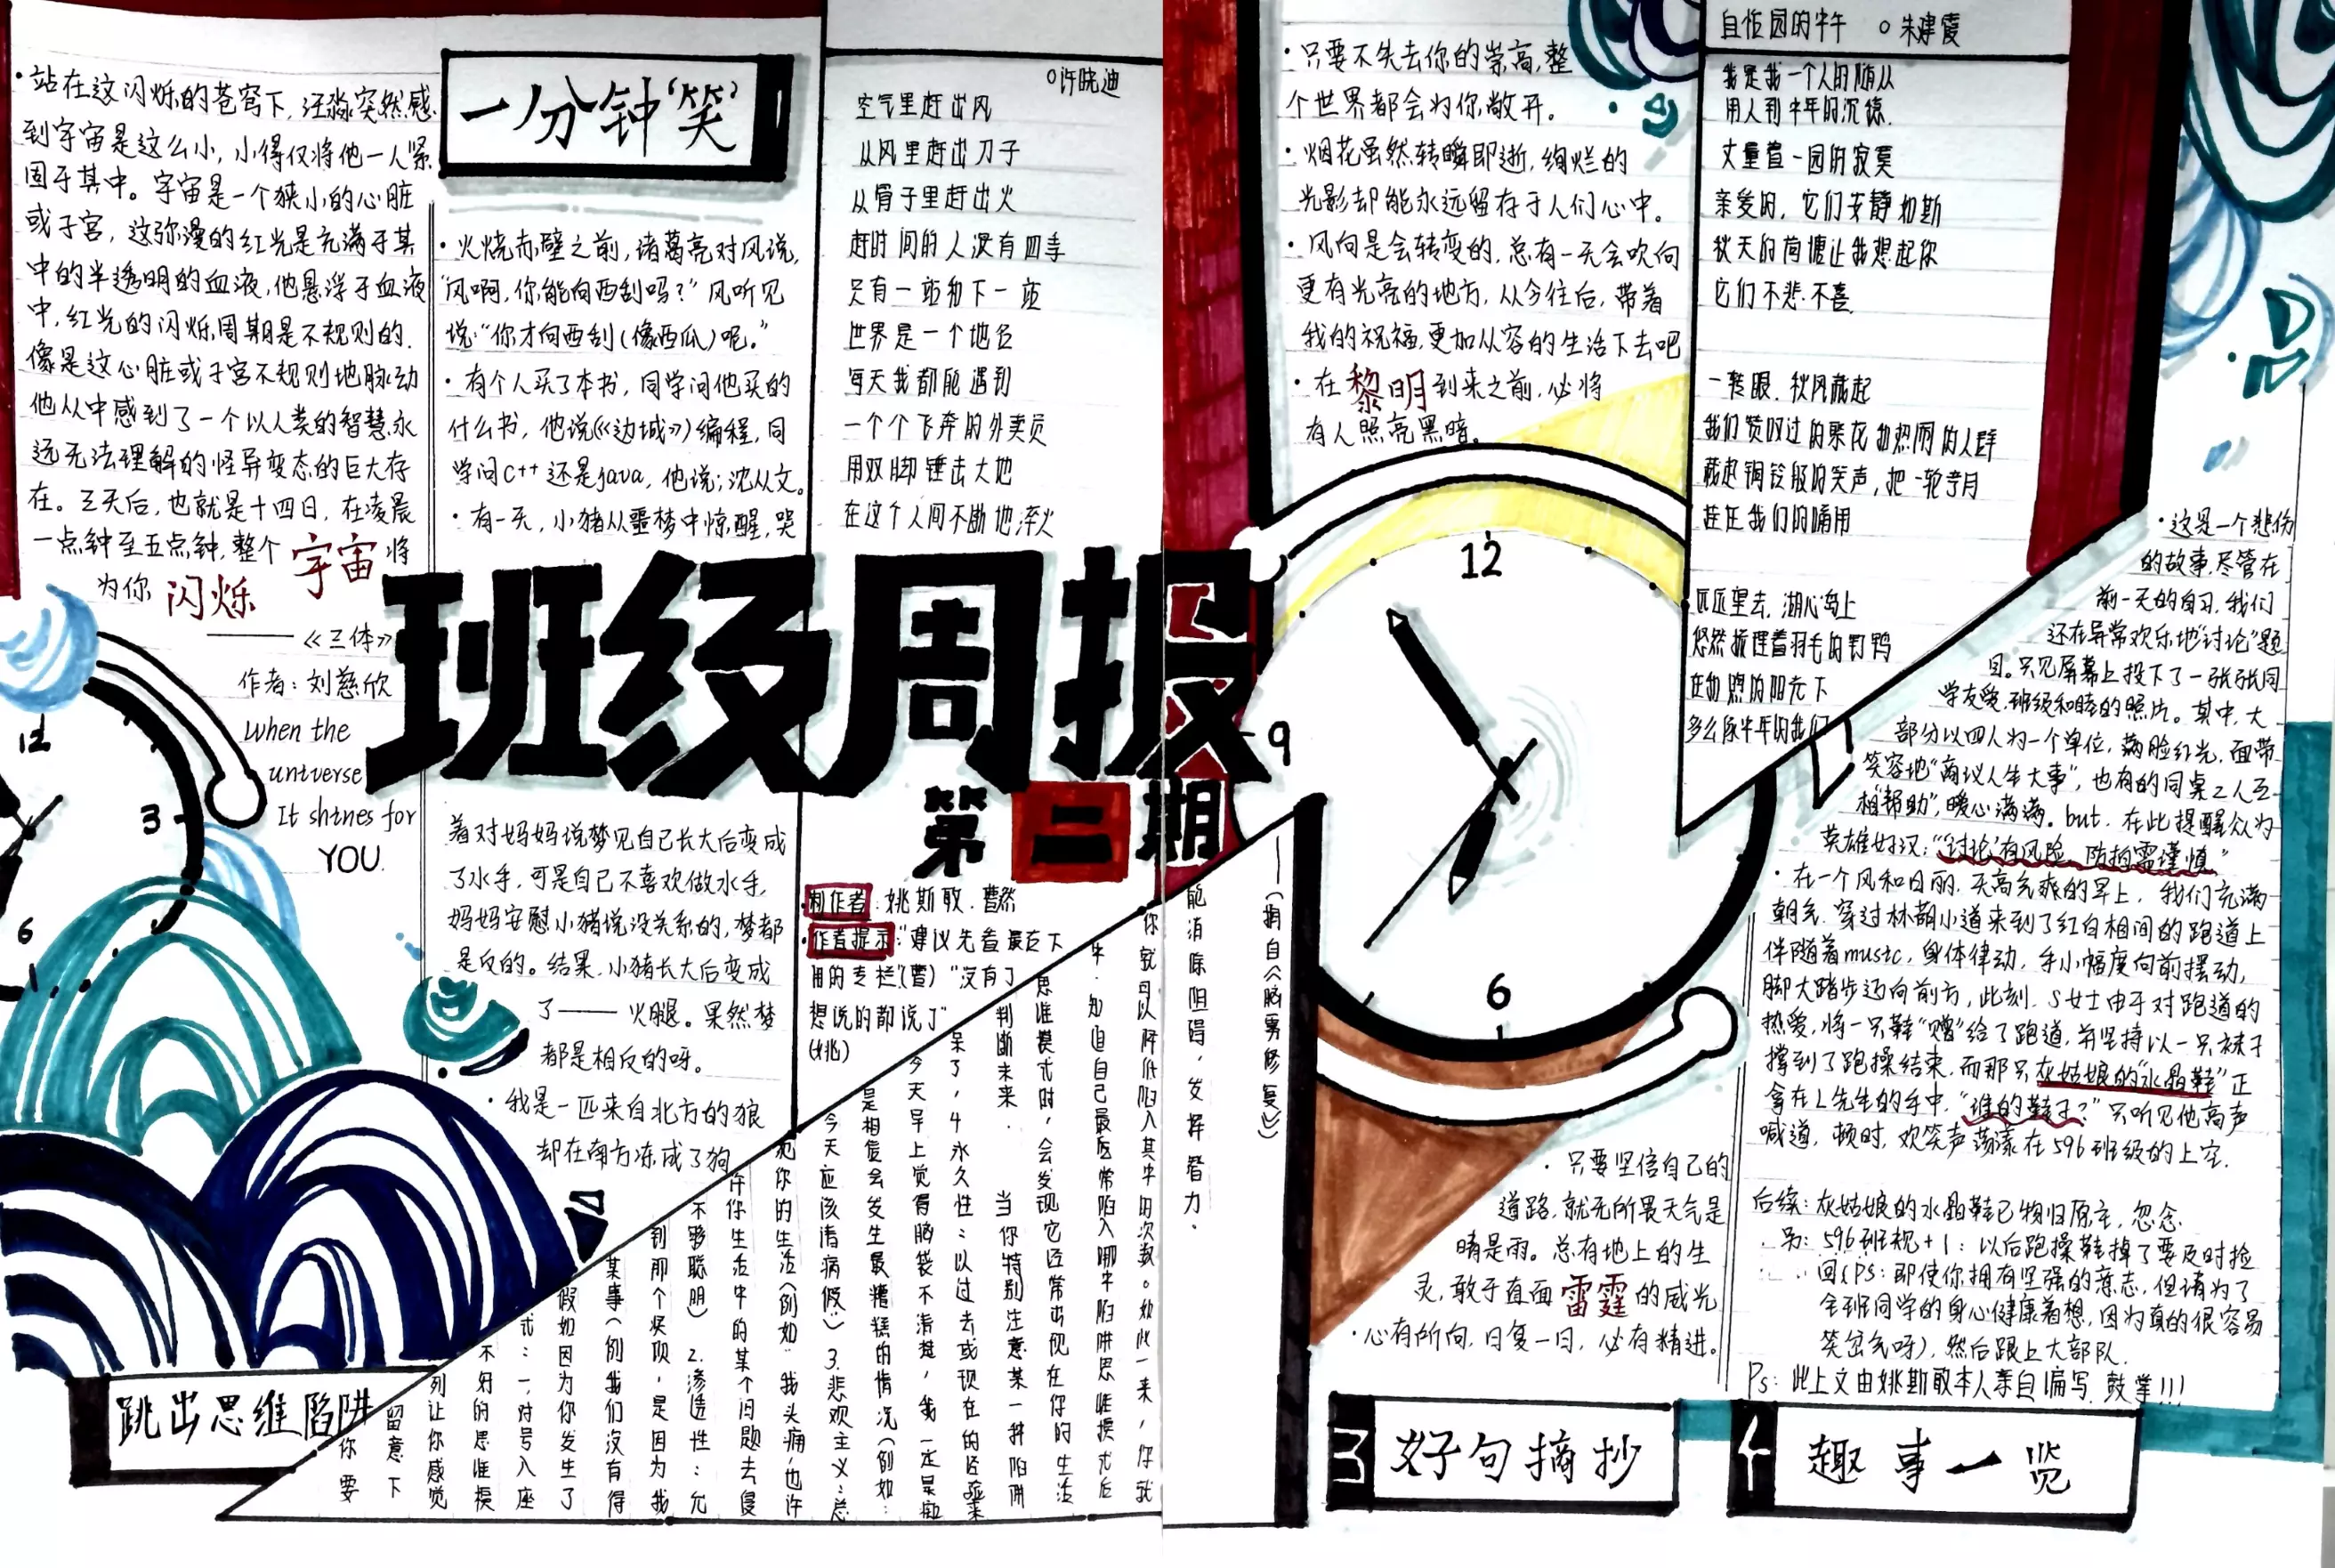 ·站在这闪烁的苍穹下,汪淼突然感
到宇宙是这么小,小得仅将他一人紧
固于其中。宇宙是一个狭小的心脏
或子宫,这弥漫的红光是充满于其
中的半透明的血液,他悬浮于血液
中,红光的闪烁周期是不规则的.
像是这心脏或子宫不规则地脉动
他从中感到了一个以人类的智慧永
远无法理解的怪异变态的巨大存
在。三天后,也就是十四日,在凌晨
一点钟至五点钟,整个宇宙将
为你闪烁
——《三体》
作者:刘慈欣
when the
universe
It shines for
YOU.
一分钟"笑"
·火烧赤壁之前,诸葛亮对风说,
"风啊,你能向西刮吗?"风听见
说:"你才向西刮(像西瓜)呢。"
·有个人买了本书,同学问他买的
什么书,他说《《边城》》编程,同
学问C++还是java,他说:沈从文。
·有一天,小猪从噩梦中惊醒,哭
着对妈妈说梦见自己长大后变成
了水手,可是自己不喜欢做水手,
妈妈安慰小猪说没关系的,梦都
是反的。结果,小猪长大后变成
了——火腿。果然梦
都是相反的呀。
·我是一匹来自北方的狼
却在南方冻成了狗
○许晓迪
空气里赶出风
从风里赶出刀子
从骨子里赶出火
赶时间的人没有四季
只有一站和下一站
世界是一个地名
每天我都能遇到
一个个飞奔的外卖员
用双脚锤击大地
在这个人间不断地淬火
班级周报
第二期
制作者:姚斯敢.曹然
作者提示:"建议先看最左下
角的专栏"(曹)"没有了
想说的都说了"
(姚)
跳出思维陷阱
你要
留意下
列让你感觉
不好的思维模
式:一,对号入座
假如因为你发生了
某事(例我们没有得
到那个奖项,是因为我
不够聪明)2.渗透性:允
许你生活中的某个问题去侵
犯你的生活(例如:我头痛,也许
今天应该请病假")3.悲观主义:总
是相信会发生最糟糕的情况(例如:
今天早上觉得脑袋不清楚,我一定是痴
呆了,4永久性:以过去或现在的经验来
判断未来.当你特别注意某一种陷阱
思维模式时,会发现它经常出现在你的生活
中.知道自己最经常陷入哪中陷阱思维模式后
你就可以降低陷入其中的次数。如此一来,你就
能消除阻碍,发挥智力.
——(摘自《脑雾修复》)
·只要不失去你的崇高,整
个世界都会为你敞开。
·烟花虽然转瞬即逝,绚烂的
光影却能永远留存于人们心中。
·风向是会转变的,总有一天会吹向
更有光亮的地方,从今往后,带着
我的祝福,更加从容的生活下去吧
·在黎明到来之前,必将
有人照亮黑暗。
12
9
6
12
3
6
·只要坚信自己的
道路,就无所畏天气是
晴是雨。总有地上的生
灵,敢于直面雷霆的威光
·心有所向,日复一日,必有精进。
3 好句摘抄
○朱建霞
我是我一个人的随从
用人到中年的沉稳.
丈量着一园的寂寞
亲爱的,它们安静如斯
秋天的荷塘让我想起你
它们不悲.不喜.
一转眼.秋风藏起
我们赞叹过的繁花和热闹的人群
藏起铜铃般的笑声,把一轮弯月
挂在我们的隅用
远远望去,湖心岛上
悠然梳理着羽毛的野鸭
在和煦的阳光下
多么像中年的我们
·这是一个悲伤
的故事.尽管在
前一天的自习,我们
还在异常欢乐地"讨论"题
目。只见屏幕上投下了一张张同
学友爱,班级和睦的照片。其中,大
部分以四人为一个单位,满脸红光,面带
笑容地"商议人生大事",也有的同桌2人互
相"帮助",暖心满满。but.在此提醒众为
英雄好汉:"'讨论'有风险,防拍需谨慎"
·在一个风和日丽,天高气爽的早上,我们充满
朝气,穿过林荫小道来到了红白相间的跑道上
伴随着music,身体律动,手小幅度向前摆动,
脚大踏步迈向前方,此刻,S女士由于对跑道的
热爱,将一只鞋"赠"给了跑道,并坚持以一只袜子
撑到了跑操结束,而那只灰姑娘的"水晶鞋"正
拿在L先生的手中."谁的鞋子?"只听见他高声
喊道,顿时,欢笑声荡漾在596班级的上空.
后续:灰姑娘的水晶鞋已物归原主,忽念.
另:596班规+1:以后跑操鞋掉了要及时捡
回(PS:即使你拥有坚强的意志,但请为了
全班同学的身心健康着想,因为真的很容易
笑岔气呀),然后跟上大部队.
Ps:此上文由姚斯敢本人亲自编写.鼓掌!!!
趣事一览